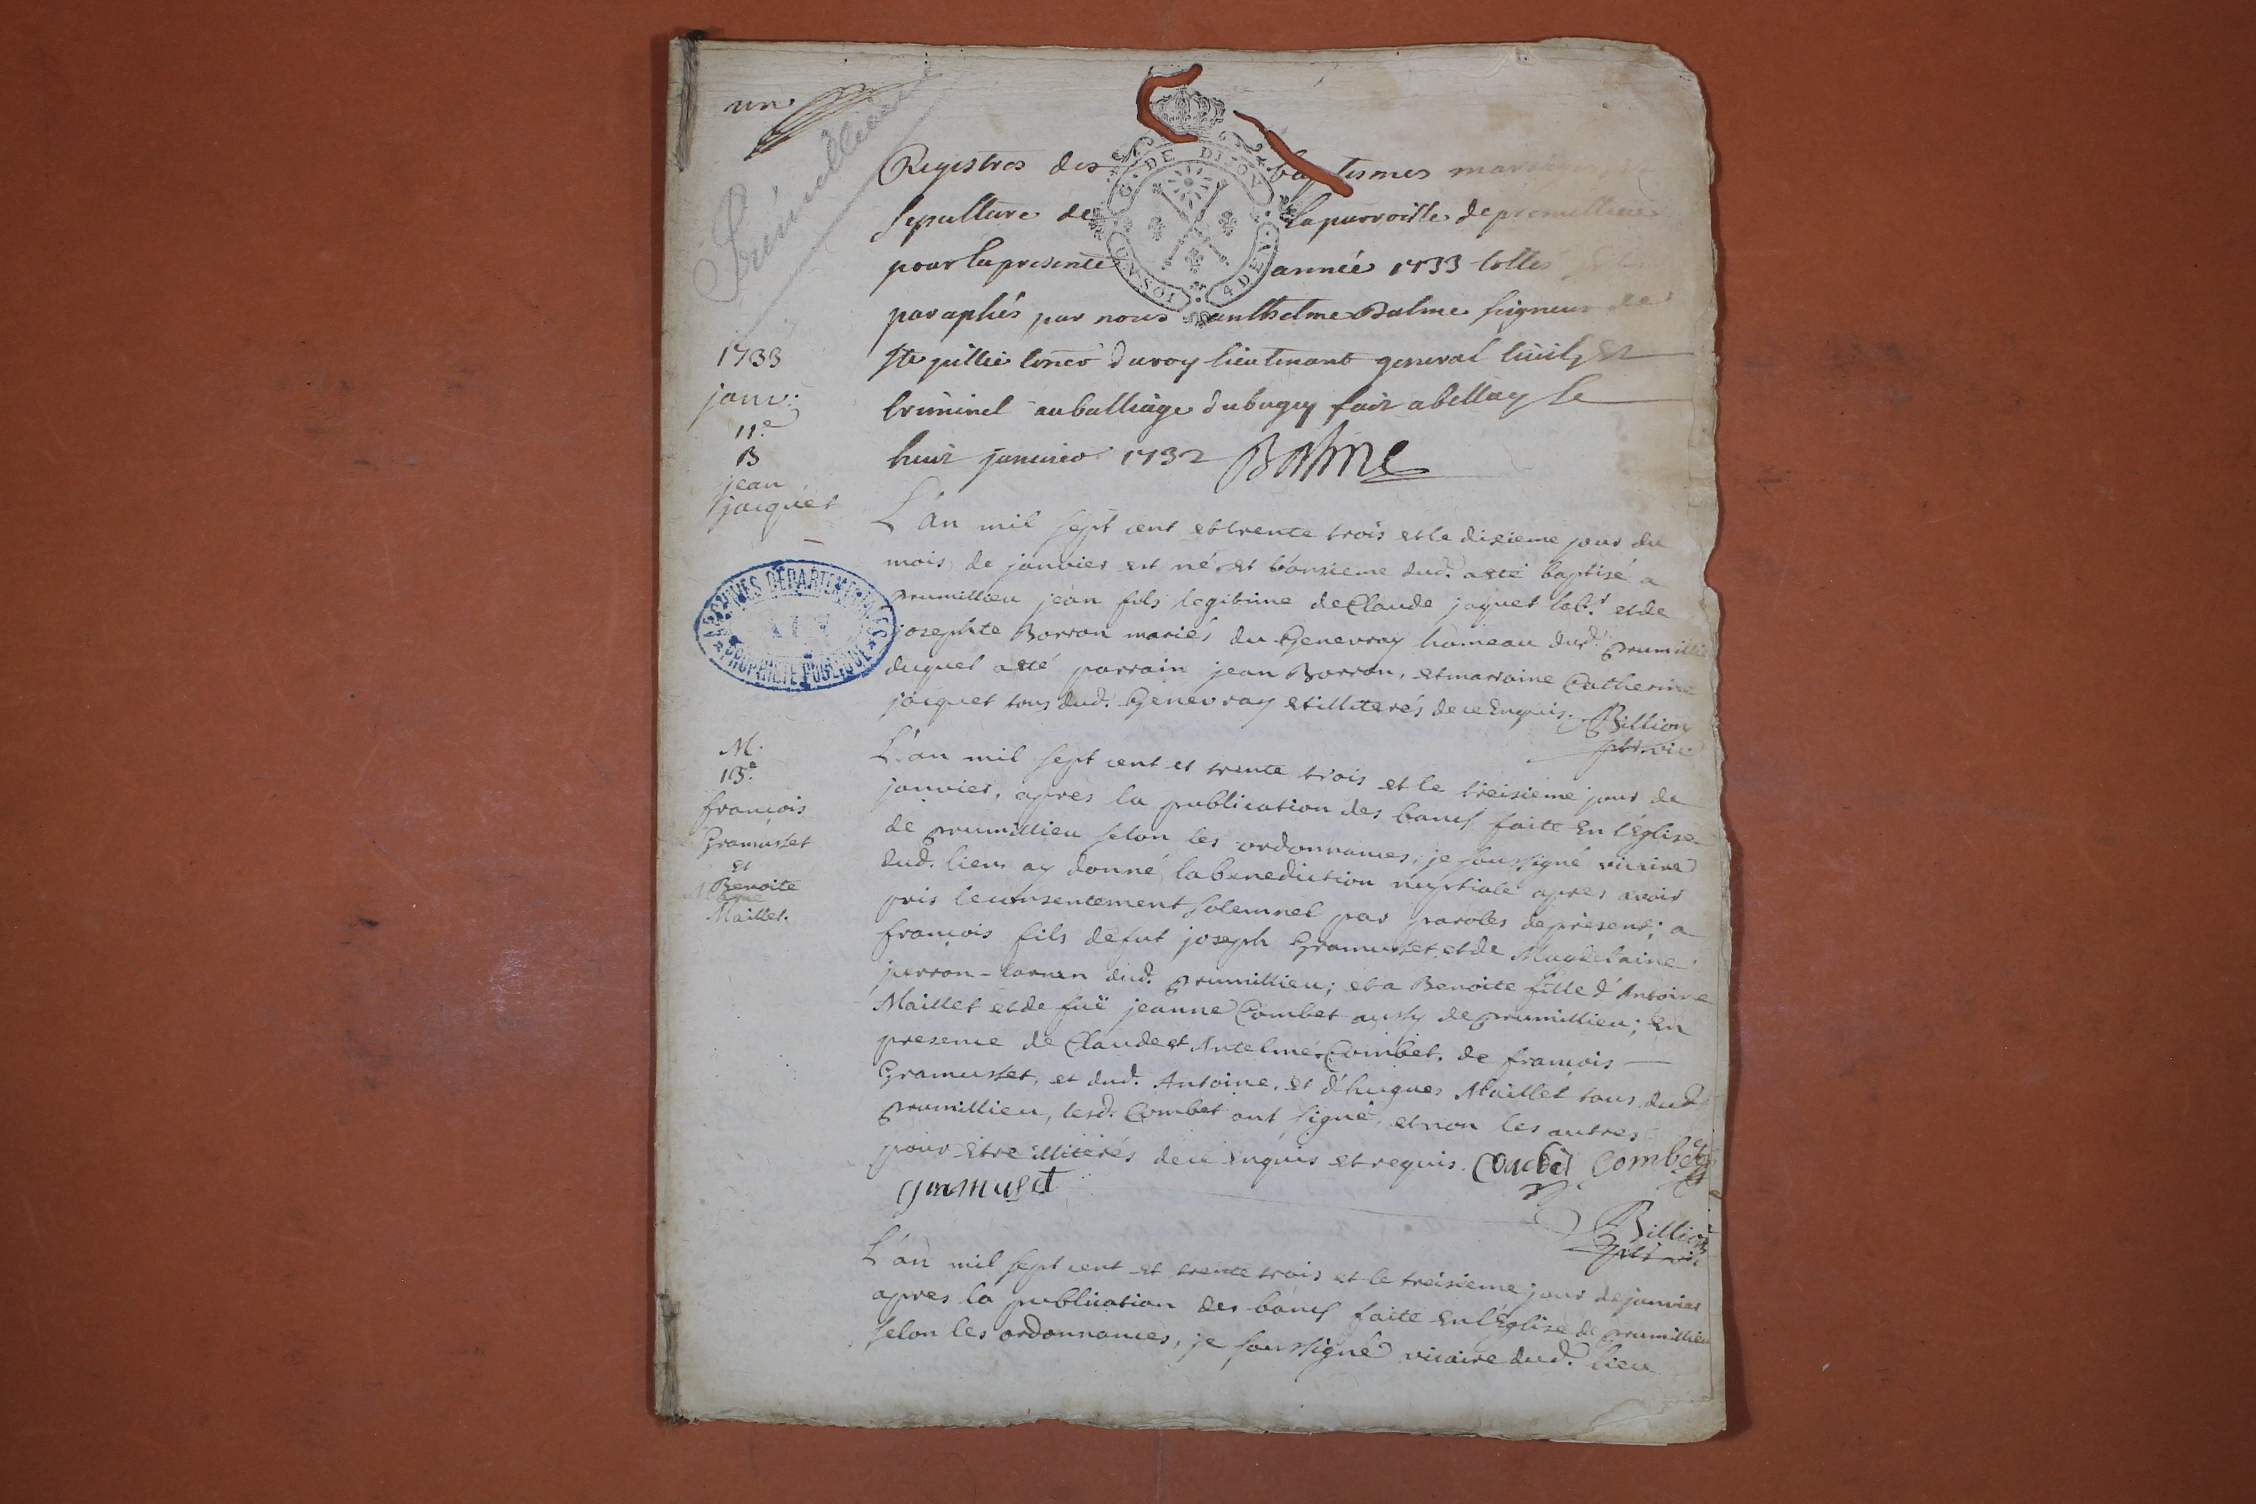 un
Prémillieu
Registres des baptesmes mariages
sepulture de la parroisse de premillieu
pour la presente année 1733 cottés
paraphés par nous anthelme Balme seigneur de
Ste jullie coner du roy lieutenant general civil et
criminel au balliage du bugey fait a bellay le
huit janvier 1732 Balme
G. DE DIJON
UN SOL
4 DEN.
1733
janv.
11.e
B
jean
jacquet
L'an mil sept cent et trente trois et le dixieme jour du
mois de janvier est né et l'onzieme dud. a eté baptisé a
prumillieu jean fils legitime de Claude jaquet lab.r et de
josephte Borron mariés du Genevray hameau dud. prumillieu
duquel a eté parrain jean Borron, et marraine Catherine
jacquet tous dud. Genevray et illiterés de ce enquis. Billion
ptre vic
ARCHIVES DÉPARTEMENTALES
AIN
PROPRIÉTÉ PUBLIQUE
M.
13.e
françois
Gramusset
et
Benoite
Maillet.
L'an mil sept cent et trente trois et le treisieme jour de
janvier, apres la publication des bancs faite en l'Eglise
de prumillieu selon les ordonnances, je soussigné vicaire
dud. lieu ay donné la benediction nuptiale apres avoir
pris le consentement solemnel par paroles de present; a
françois fils de fut joseph Gramusset, et de Magdelaine
dud. prumillieu; et a Benoite fille d'Antoine
Maillet et de fuë jeanne Combet aussy de prumillieu; en
presence de Claude et Antelme Combet, de françois
Gramusset, et dud. Antoine, et d'hugues Maillet tous dud.
prumillieu, lesd. Combet ont signé, et non les autres
pour etre illiterés de ce enquis et requis. Combet Combet
gramuset
Billion
ptre vic
L'an mil sept cent et trente trois et le treisieme jour de janvier
apres la publication des bancs faite en l'Eglise de prumillieu
selon les ordonnances, je soussigné vicaire dud. lieu